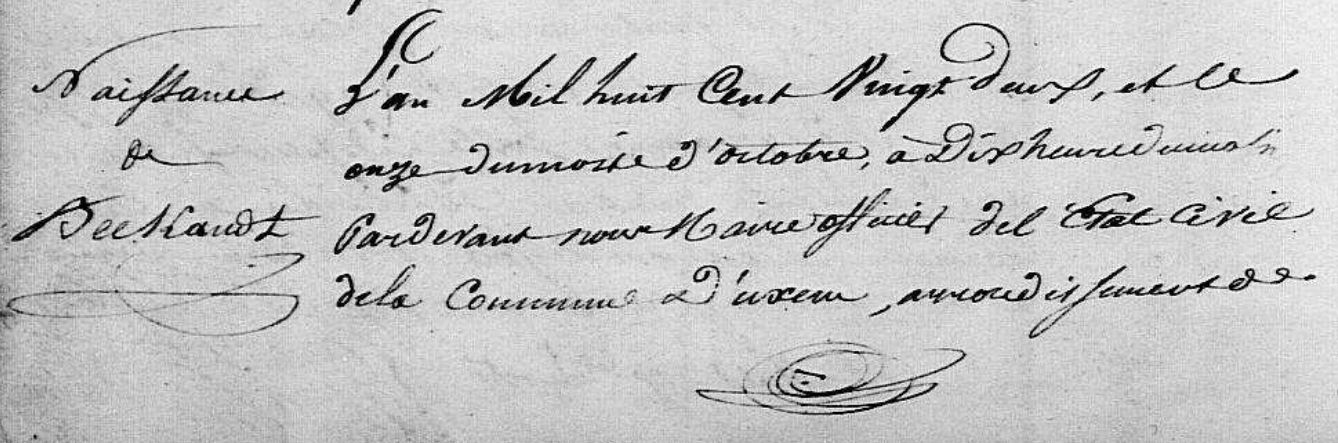 Naissance
de
Beekandt
L'an Mil huit Cent Vingt deux, et le
onze du mois de d'octobre, à Dix heure du matin
Pardevant nous Maire officier del Etat Civil
dela Commune d'uxem, arrondissement de